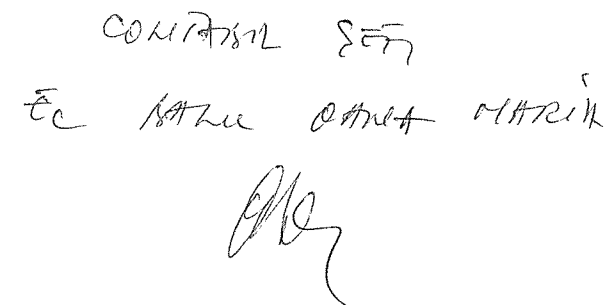 CONTABIL ȘEF,
Ec BALU OANA MARIA